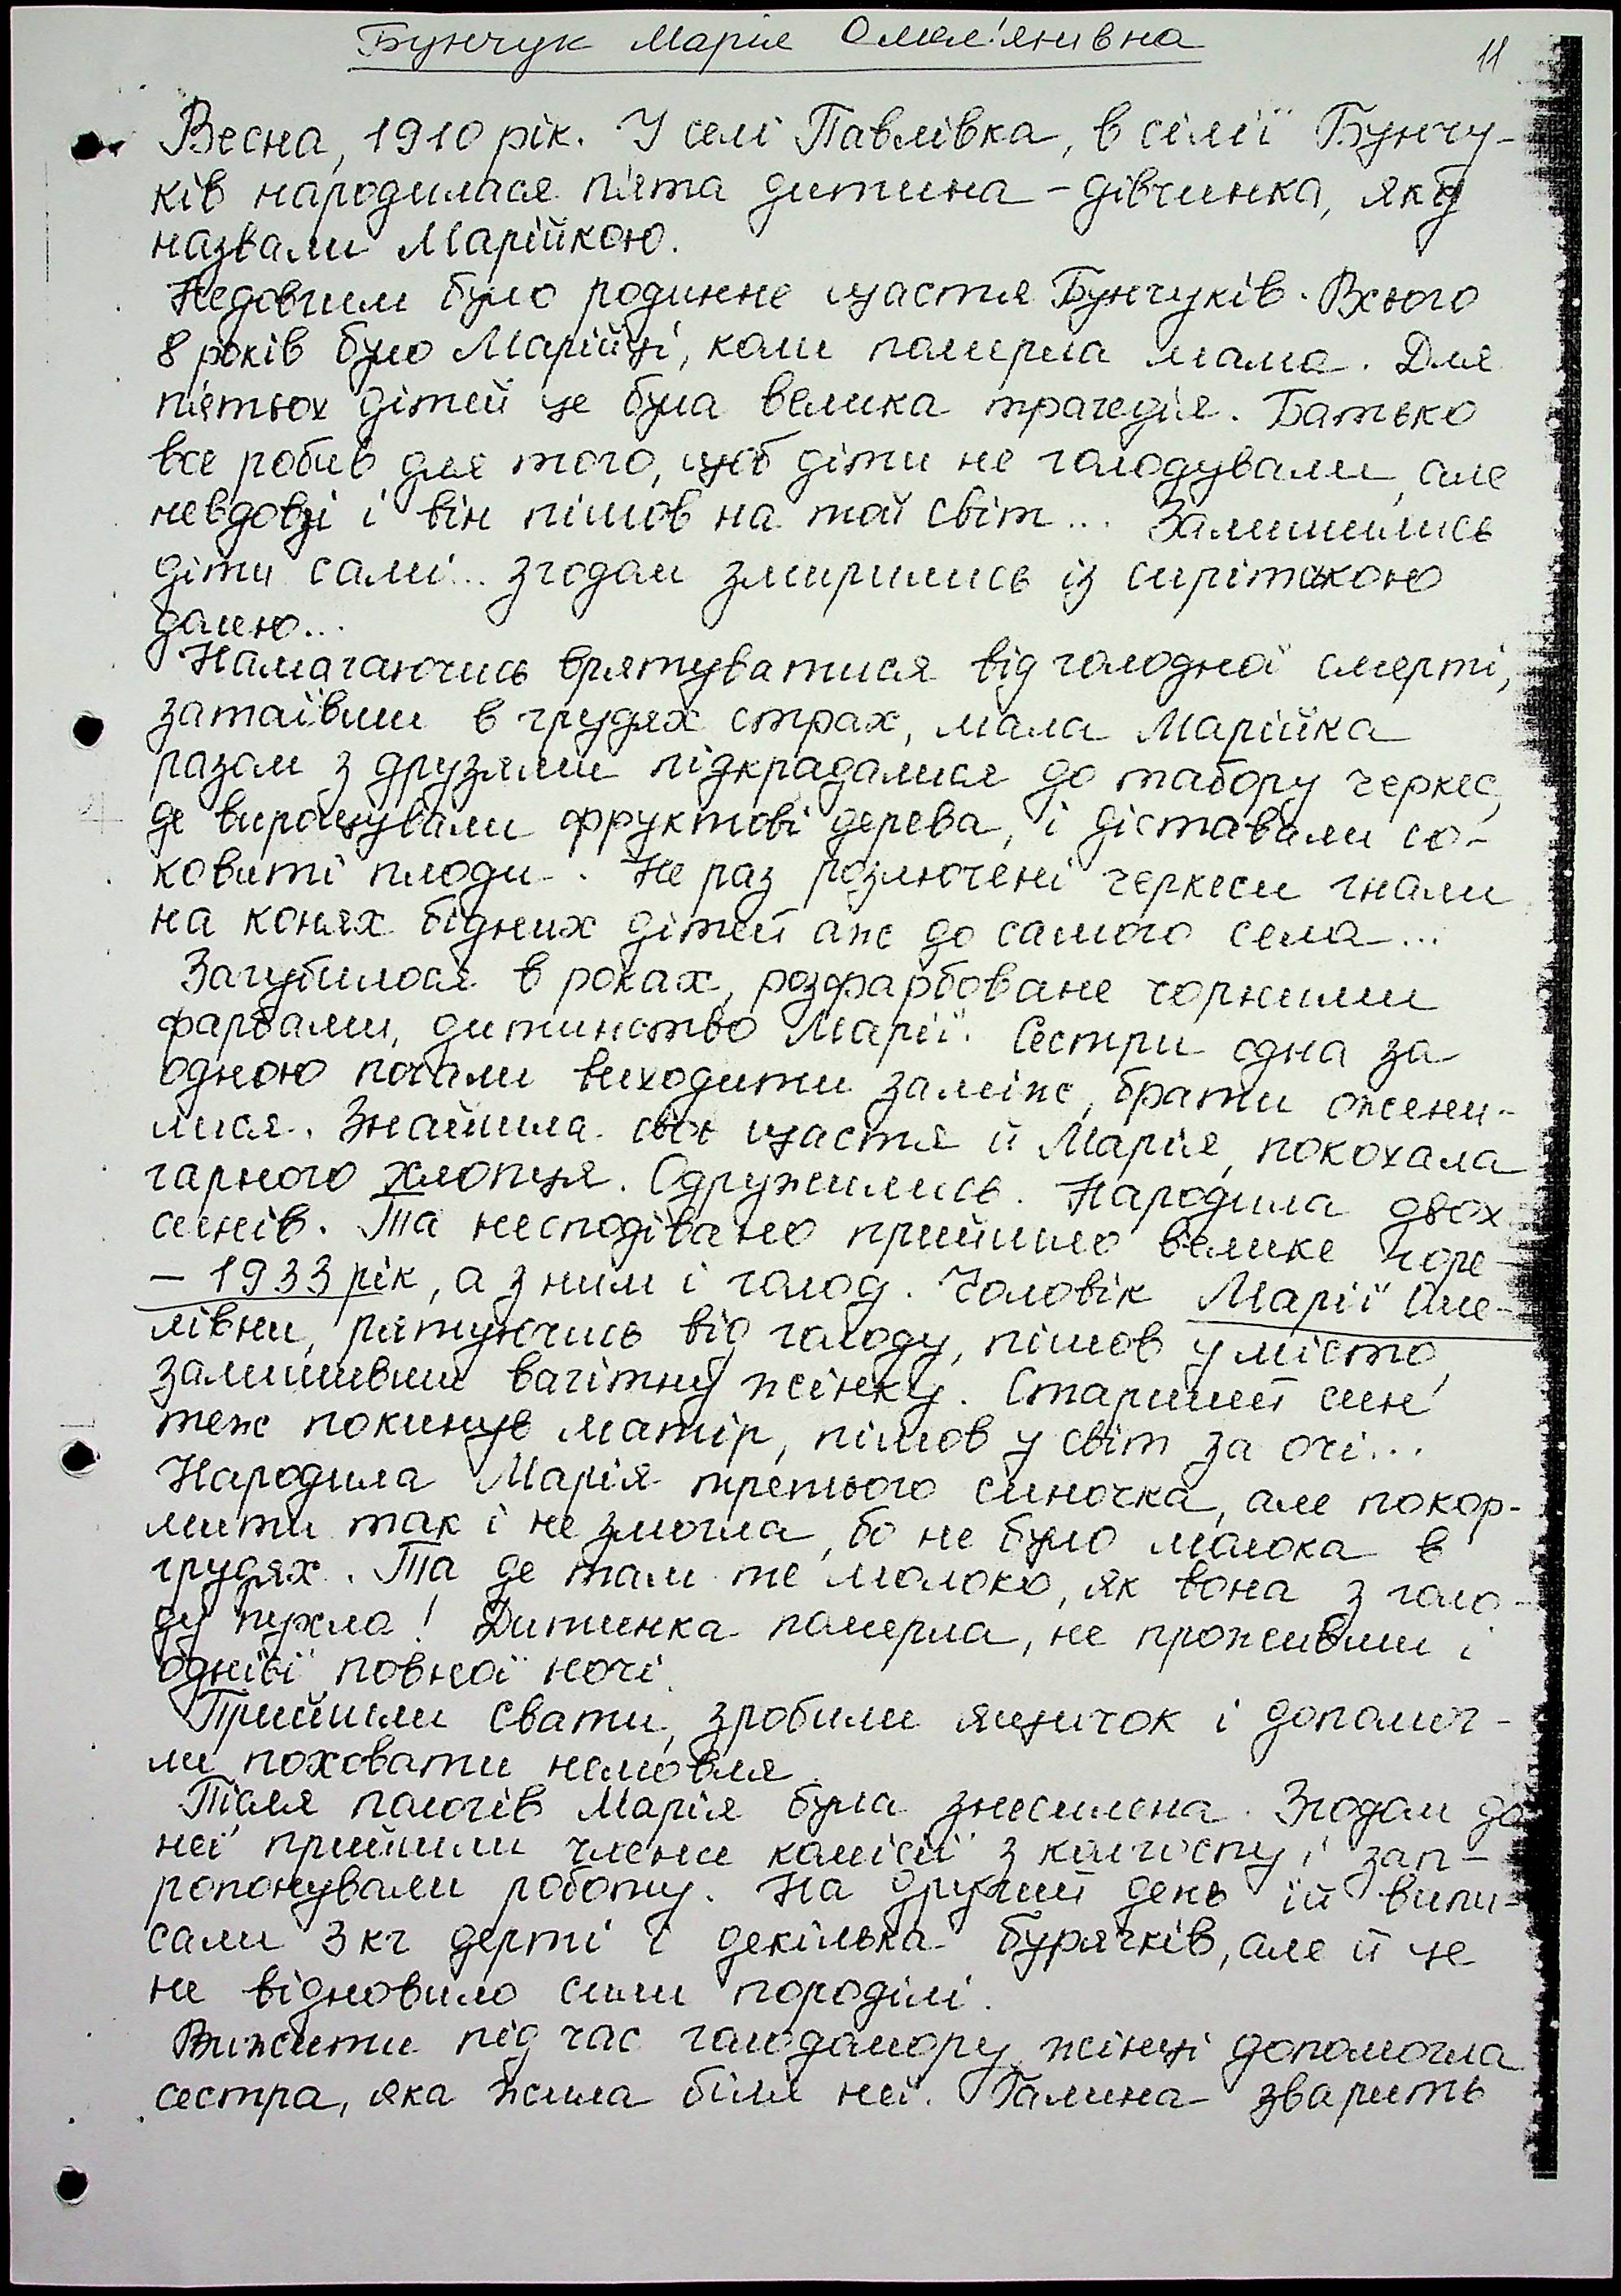 Бунчук Марія Омел'янівна
11
Весна, 1910 рік. У селі Павлівка, в сім'ї Бунчу-
ків народилася п'ята дитина – дівчинка, яку
назвали Марійкою.
Недовгим було родинне щастя Бунчуків. Всього
8 років було Марійці, коли померла мама. Для
п'ятьох дітей це була велика трагедія. Батько
все робив для того, щоб діти не голодували, але
невдовзі і він пішов на той світ... Залишились
діти самі... Згодом змирились із сирітською
долею...
Намагаючись врятуватися від голодної смерті,
затаївши в грудях страх, мала Марійка
разом з друзями підкрадалися до табору черкес,
де вирощували фруктові дерева, і діставали со-
ковиті плоди. Не раз розлючені черкеси гнали
на конях бідних дітей аж до самого села...
Загубилося в роках, розфарбоване чорними
фарбами, дитинство Марії. Сестри одна за
одною почали виходити заміж, брати жени-
лися. Знайшла своє щастя й Марія, покохала
гарного хлопця. Одружились. Народила двох
синів. Та несподівано прийшло велике горе
– 1933 рік, а з ним і голод. Чоловік Марії Оме-
лівни, рятуючись від голоду, пішов у місто,
залишивши вагітну жінку. Старший син
теж покинув матір, пішов у світ за очі...
Народила Марія третього синочка, але покор-
мити так і не змогла, бо не було молока в
грудях. Та де там те молоко, як вона з голо-
ду пухла! Дитинка померла, не проживши і
однієї повної ночі.
Прийшли свати, зробили ящичок і допомог-
ли поховати немовля.
Після пологів Марія була знесилена. Згодом до
неї прийшли члени комісії з колгоспу і зап-
ропонували роботу. На другий день їй випи-
сали 3 кг дерті і декілька бурячків, але й це
не відновило сили породілі.
Вижити під час голодомору жінці допомогла
сестра, яка жила біля неї. Галина зварить